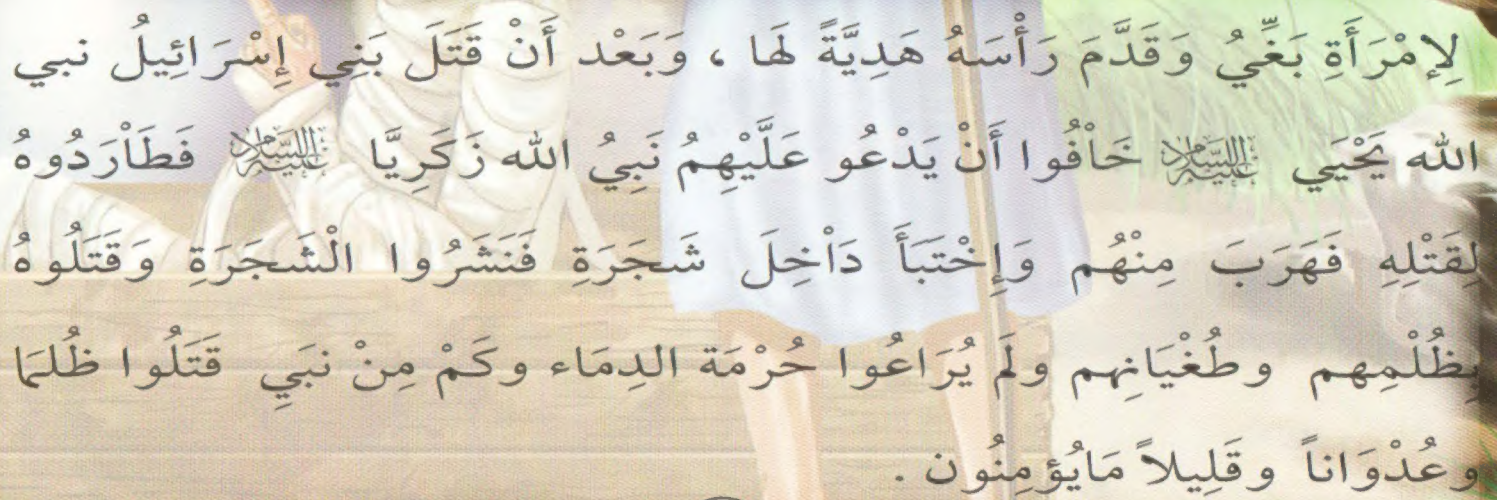 لِإمْرَأَةِ بَغِّيُ وَقَدَّمَ رَأْسَهُ هَدِيَّةً لَها ، وَبَعْد أَنْ قَتَلَ بَنِي إِسْرَائِيلُ نبي
الله يَحْيَي عَلَيْهِ السَّلَامُ خَاْفُوا أَنْ يَدْعُو عَلَّيْهِمُ نَبِيُ الله زَكَرِيَّا عَلَيْهِ السَّلَامُ فَطَاْرَدُوهُ
لِقَتْلِهِ فَهَرَبَ مِنْهُم وَإِخْتَبَأَ دَاْخِلَ شَجَرَةِ فَنَشَرُوا الْشَجَرَةِ وَقَتَلُوهُ
بِظُلْمِهِم وطُغْيَانِهِم ولَم يُرَاعُوا حُرْمَة الدِمَاء وكَمْ مِنْ نبَيِ قَتَلُوا ظُلمَا
وعُدْوَاناً وقَلِيلاً مَايُؤمِنُون .